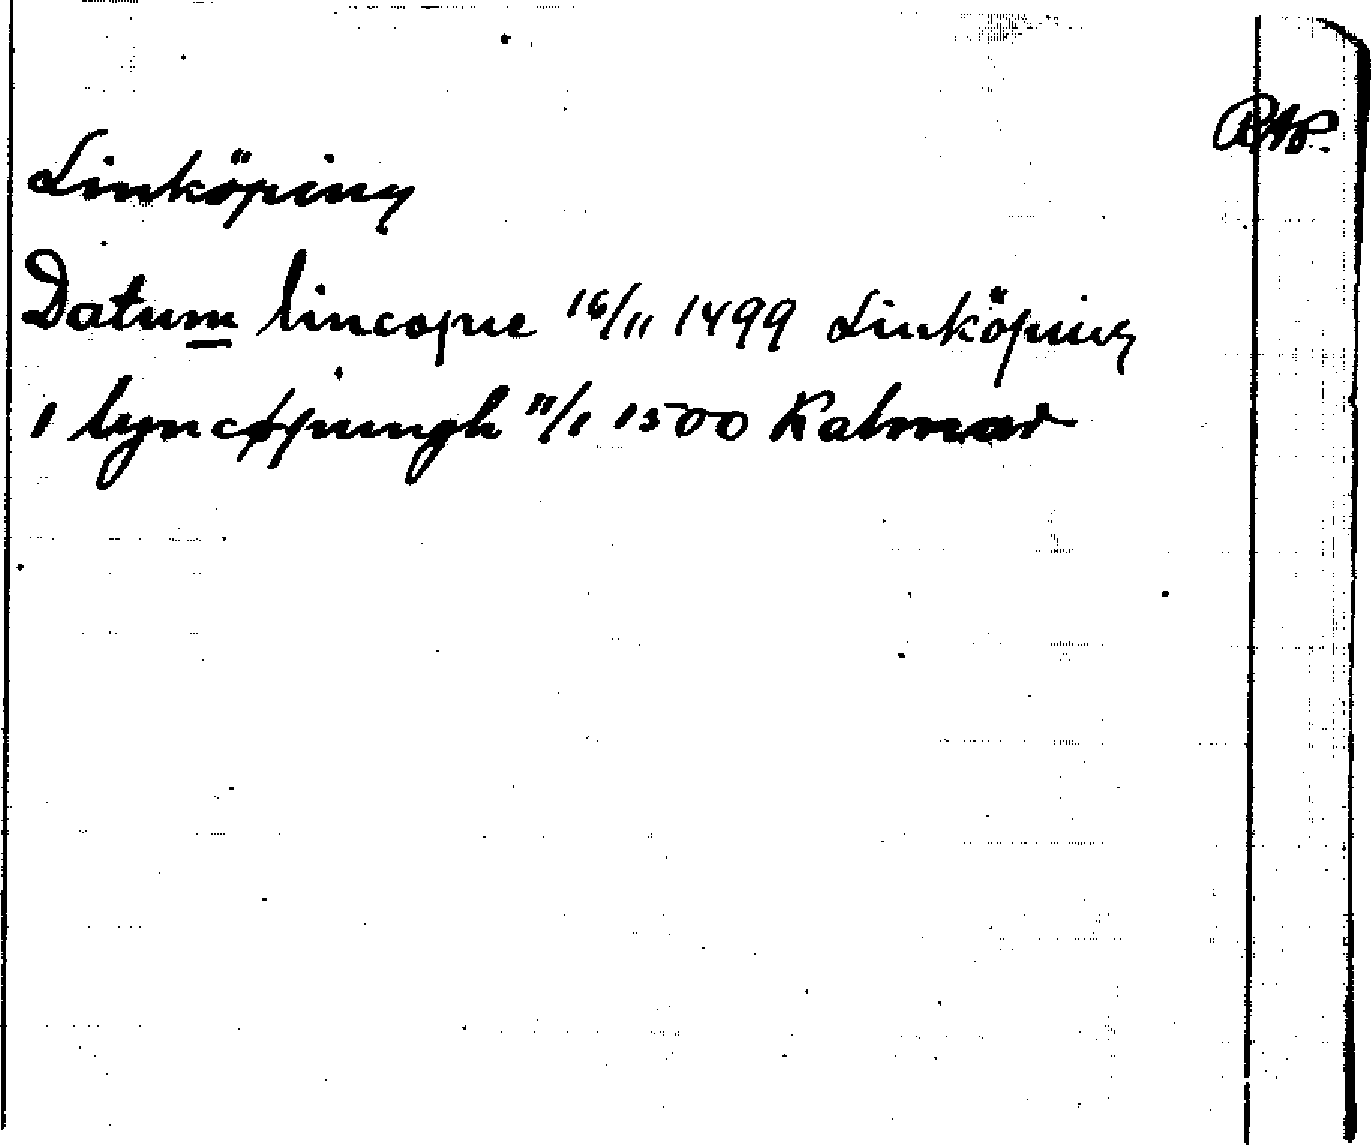 RAp.
Linköping
Datum lincopie 16/11 1499 Linköping
i lyncøpungh 11/1 1500 Kalmar